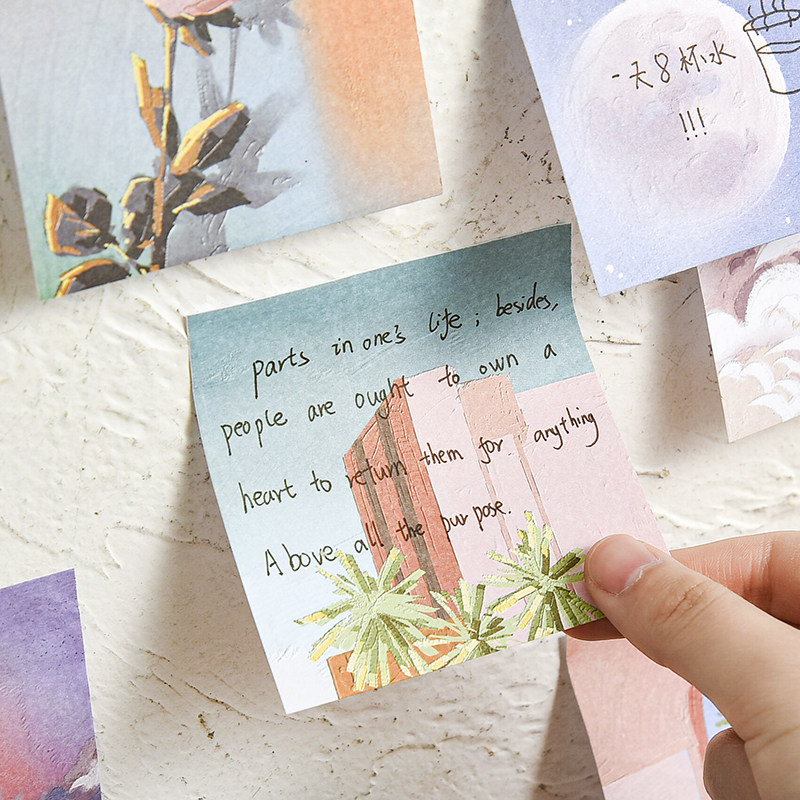 一天8杯水
!!!
parts in one's life ; besides,
people are ought to own a
heart to return them for anything
Above all the purpose.